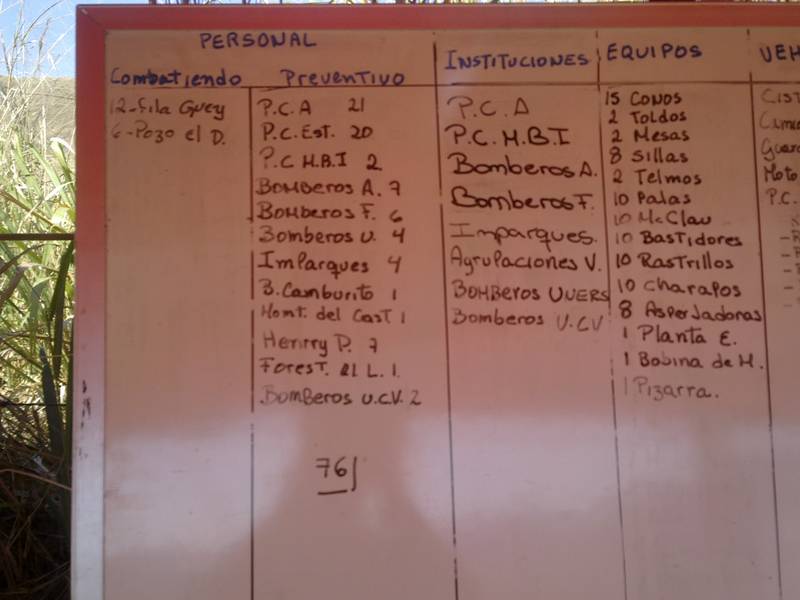 PERSONAL
Combatiendo
12-Fila Guey
6-Pozo el D.
Preventivo
P.C.A 21
P.C.Est. 20
P.C M.B.I 2
BOMBEROS A. 7
BOMBEROS F. 6
Bomberos U. 4
ImParques 4
B.Camburito 1
Mont. del Cast 1
Henrry P. 7
Forest. el L. 1.
Bomberos U.C.V. 2
76
INSTITUCIONES
P.C.A
P.C.M.B.I
Bomberos A.
Bomberos F.
Imparques.
Agrupaciones V.
BOMBEROS UVERS
Bomberos U.CV
EQUIPOS
15 Conos
2 Toldos
2 Mesas
8 Sillas
2 Telmos
10 Palas
10 McClau
10 Bastidores
10 Rastrillos
10 charapos
8 Asperjadoras
1 Planta E.
1 Bobina de M.
1 Pizarra.
VEH
CIST
Guar
Moto
P.C.